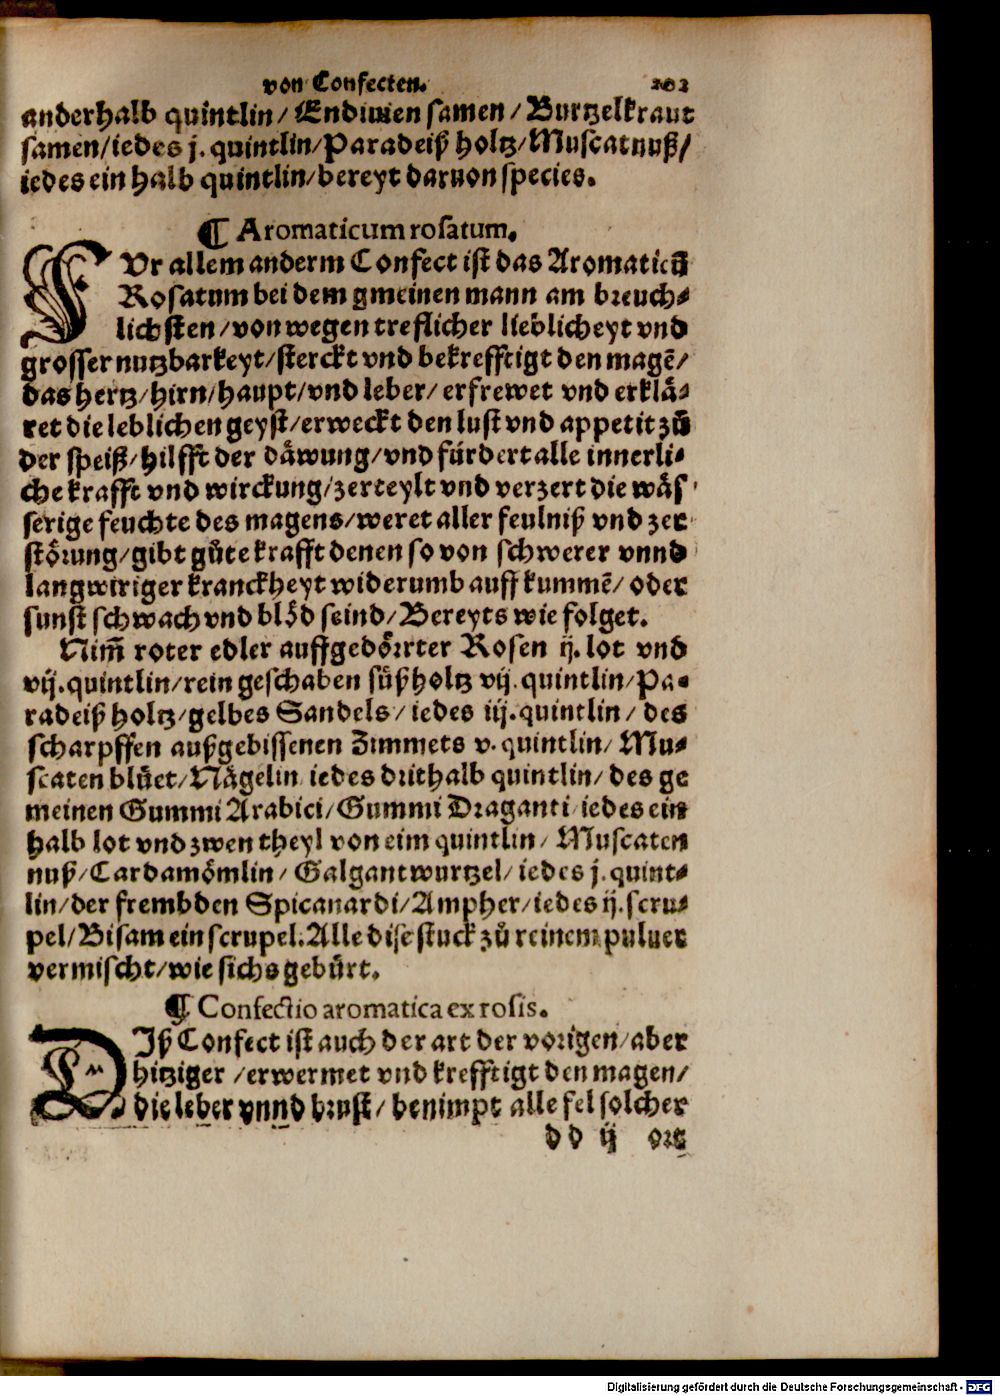 von Confecten. 202
anderhalb quintlin/ Endiuien samen/ Burtzelkraut
samen/iedes j. quintlin/Paradeiß holtz/Muscatnuß/
iedes ein halb quintlin/bereyt daruon species.
¶ Aromaticum rosatum.
FUr allem anderm Confect ist das Aromaticū
Rosatum bei dem gmeinen mann am breuch-
lichsten/von wegen treflicher lieblicheyt vnd
grosser nutzbarkeyt/sterckt vnd bekrefftigt den magē/
das hertz/hirn/haupt/vnd leber/ erfrewet vnd erklå-
ret die leblichen geyst/erweckt den lust vnd appetit zů
der speiß/hilfft der dåwung/vnd fürdert alle innerli-
che krafft vnd wirckung/zerteylt vnd verzert die wås-
serige feuchte des magens/weret aller feulniß vnd zer
störung/gibt gůte krafft denen so von schwerer vnnd
langwiriger kranckheyt widerumb auff kummē/ oder
sunst schwach vnd blöd seind/Bereyts wie folget.
Nim̄ roter edler auffgedörrter Rosen ij. lot vnd
vij.quintlin/rein geschaben süßholtz vij.quintlin/Pa-
radeiß holtz/gelbes Sandels/ iedes iij.quintlin/ des
scharpffen außgebissenen Zimmets v. quintlin/ Mu-
scaten blüet/Någelin iedes drithalb quintlin/des ge
meinen Gummi Arabici/Gummi Draganti iedes ein
halb lot vnd zwen theyl von eim quintlin/ Muscaten
nuß/Cardamömlin/ Galgantwurtzel/ iedes j.quint-
lin/der frembden Spicanardi/Ampher/iedes ij.scru-
pel/Bisam ein scrupel.Alle dise stuck zů reinem puluer
vermischt/wie sichs gebürt.
¶ Confectio aromatica ex rosis.
DIß Confect ist auch der art der vorigen/aber
hitziger /erwermet vnd krefftigt den magen/
die leber vnnd brust/ benimpt alle fel solcher
dd ij ort
Digitalisierung gefördert durch die Deutsche Forschungsgemeinschaft - DFG